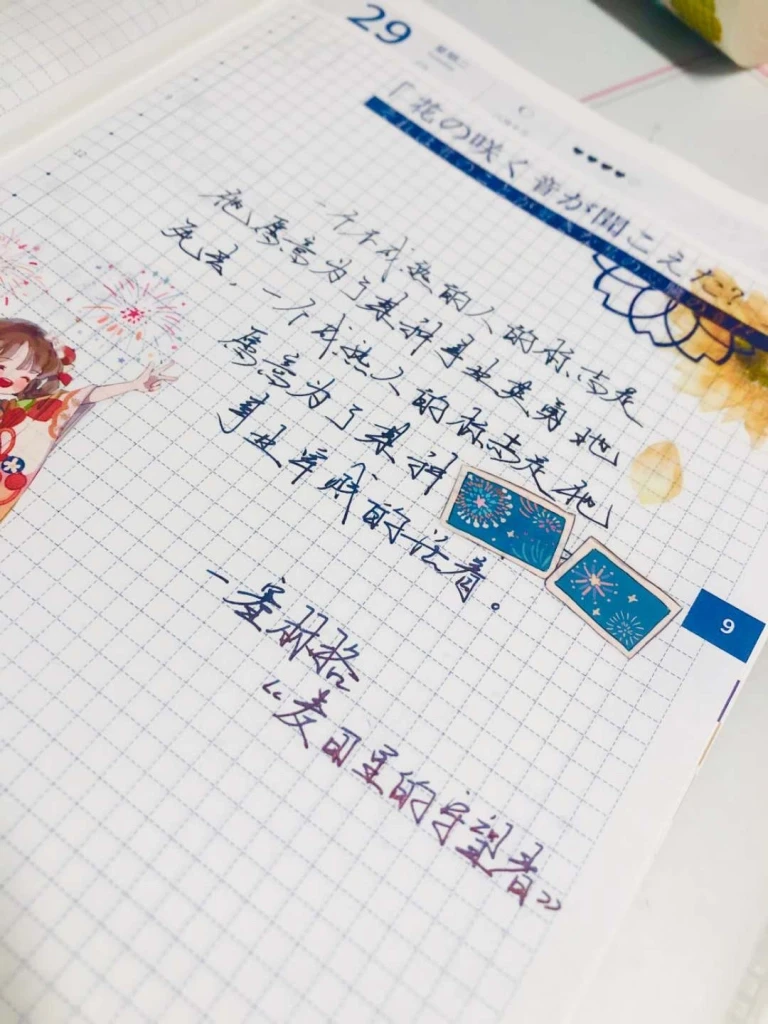 29
「花の咲く音が聞こえた?
一个不成熟的人的标志是
他愿意为了某种事业英勇地
死去,一个成熟人的标志是他
愿意为了某种
事业卑贱的活着。
一塞林格
“麦田里的守望者”
9
12